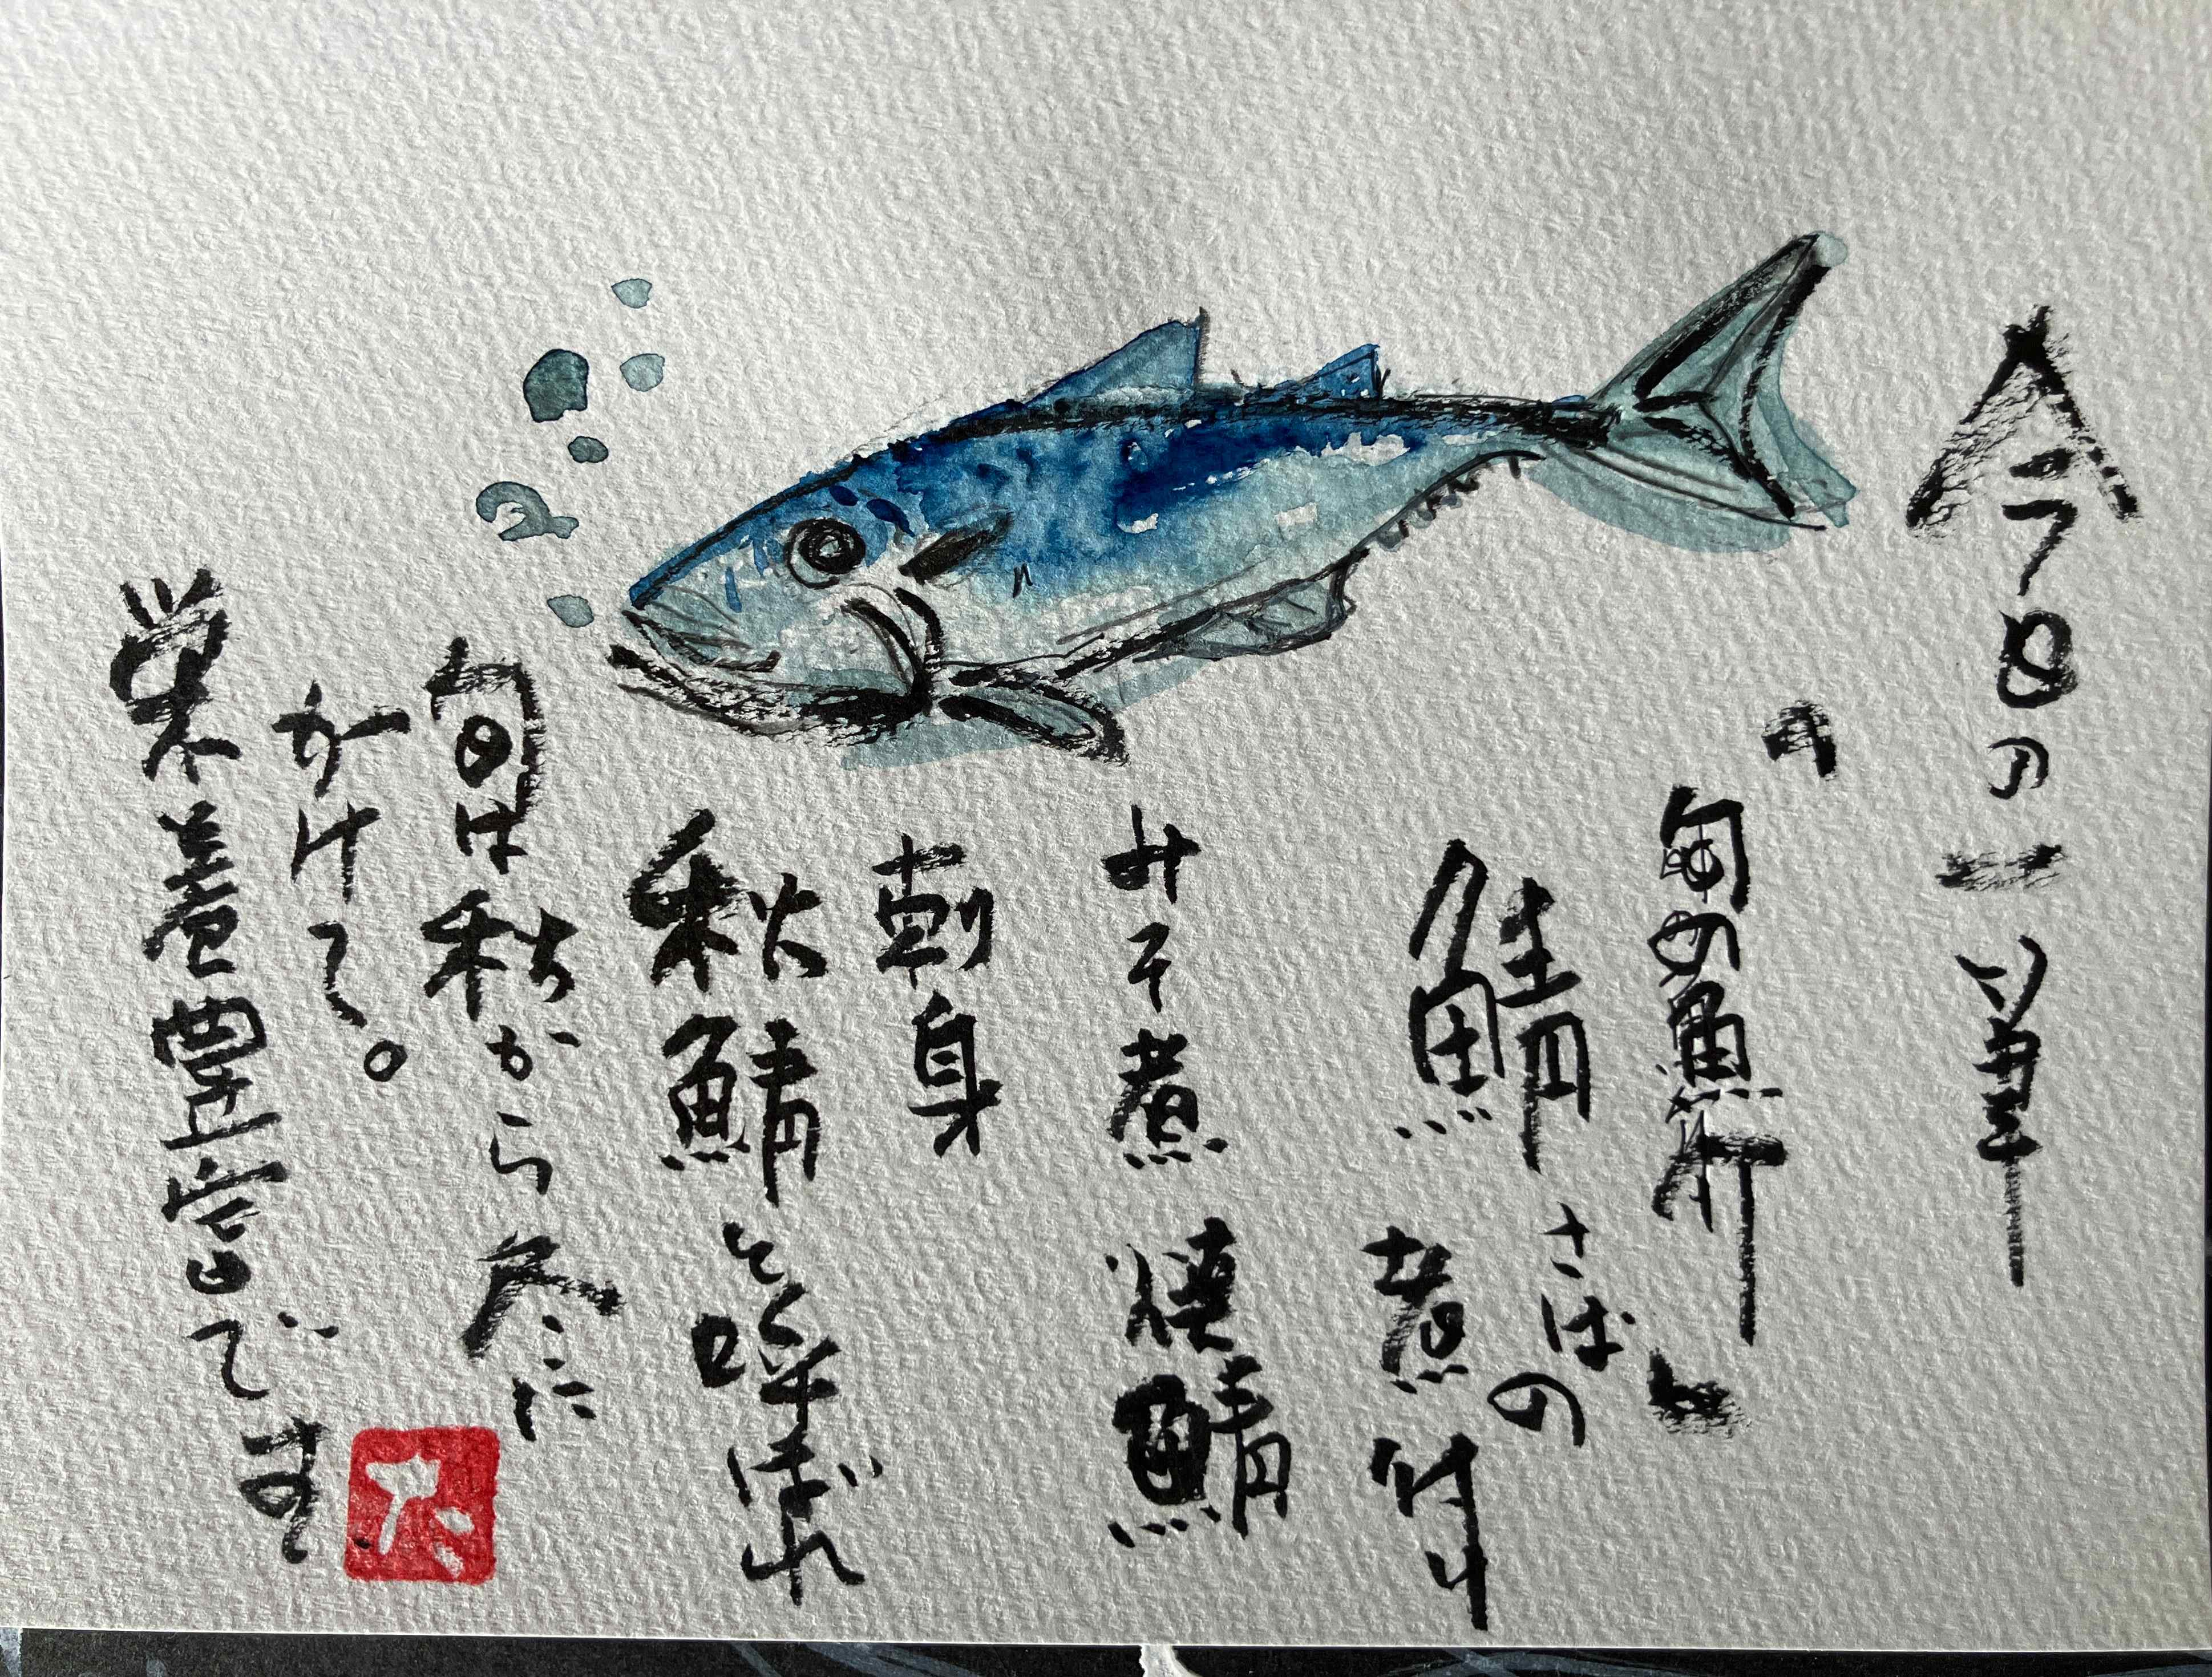 今日の一筆
「旬の魚介」
鯖さばの
煮付け
みそ煮 焼鯖
刺身
秋鯖と呼ばれ
旬は秋から冬に
かけて。
栄養豊富です
た